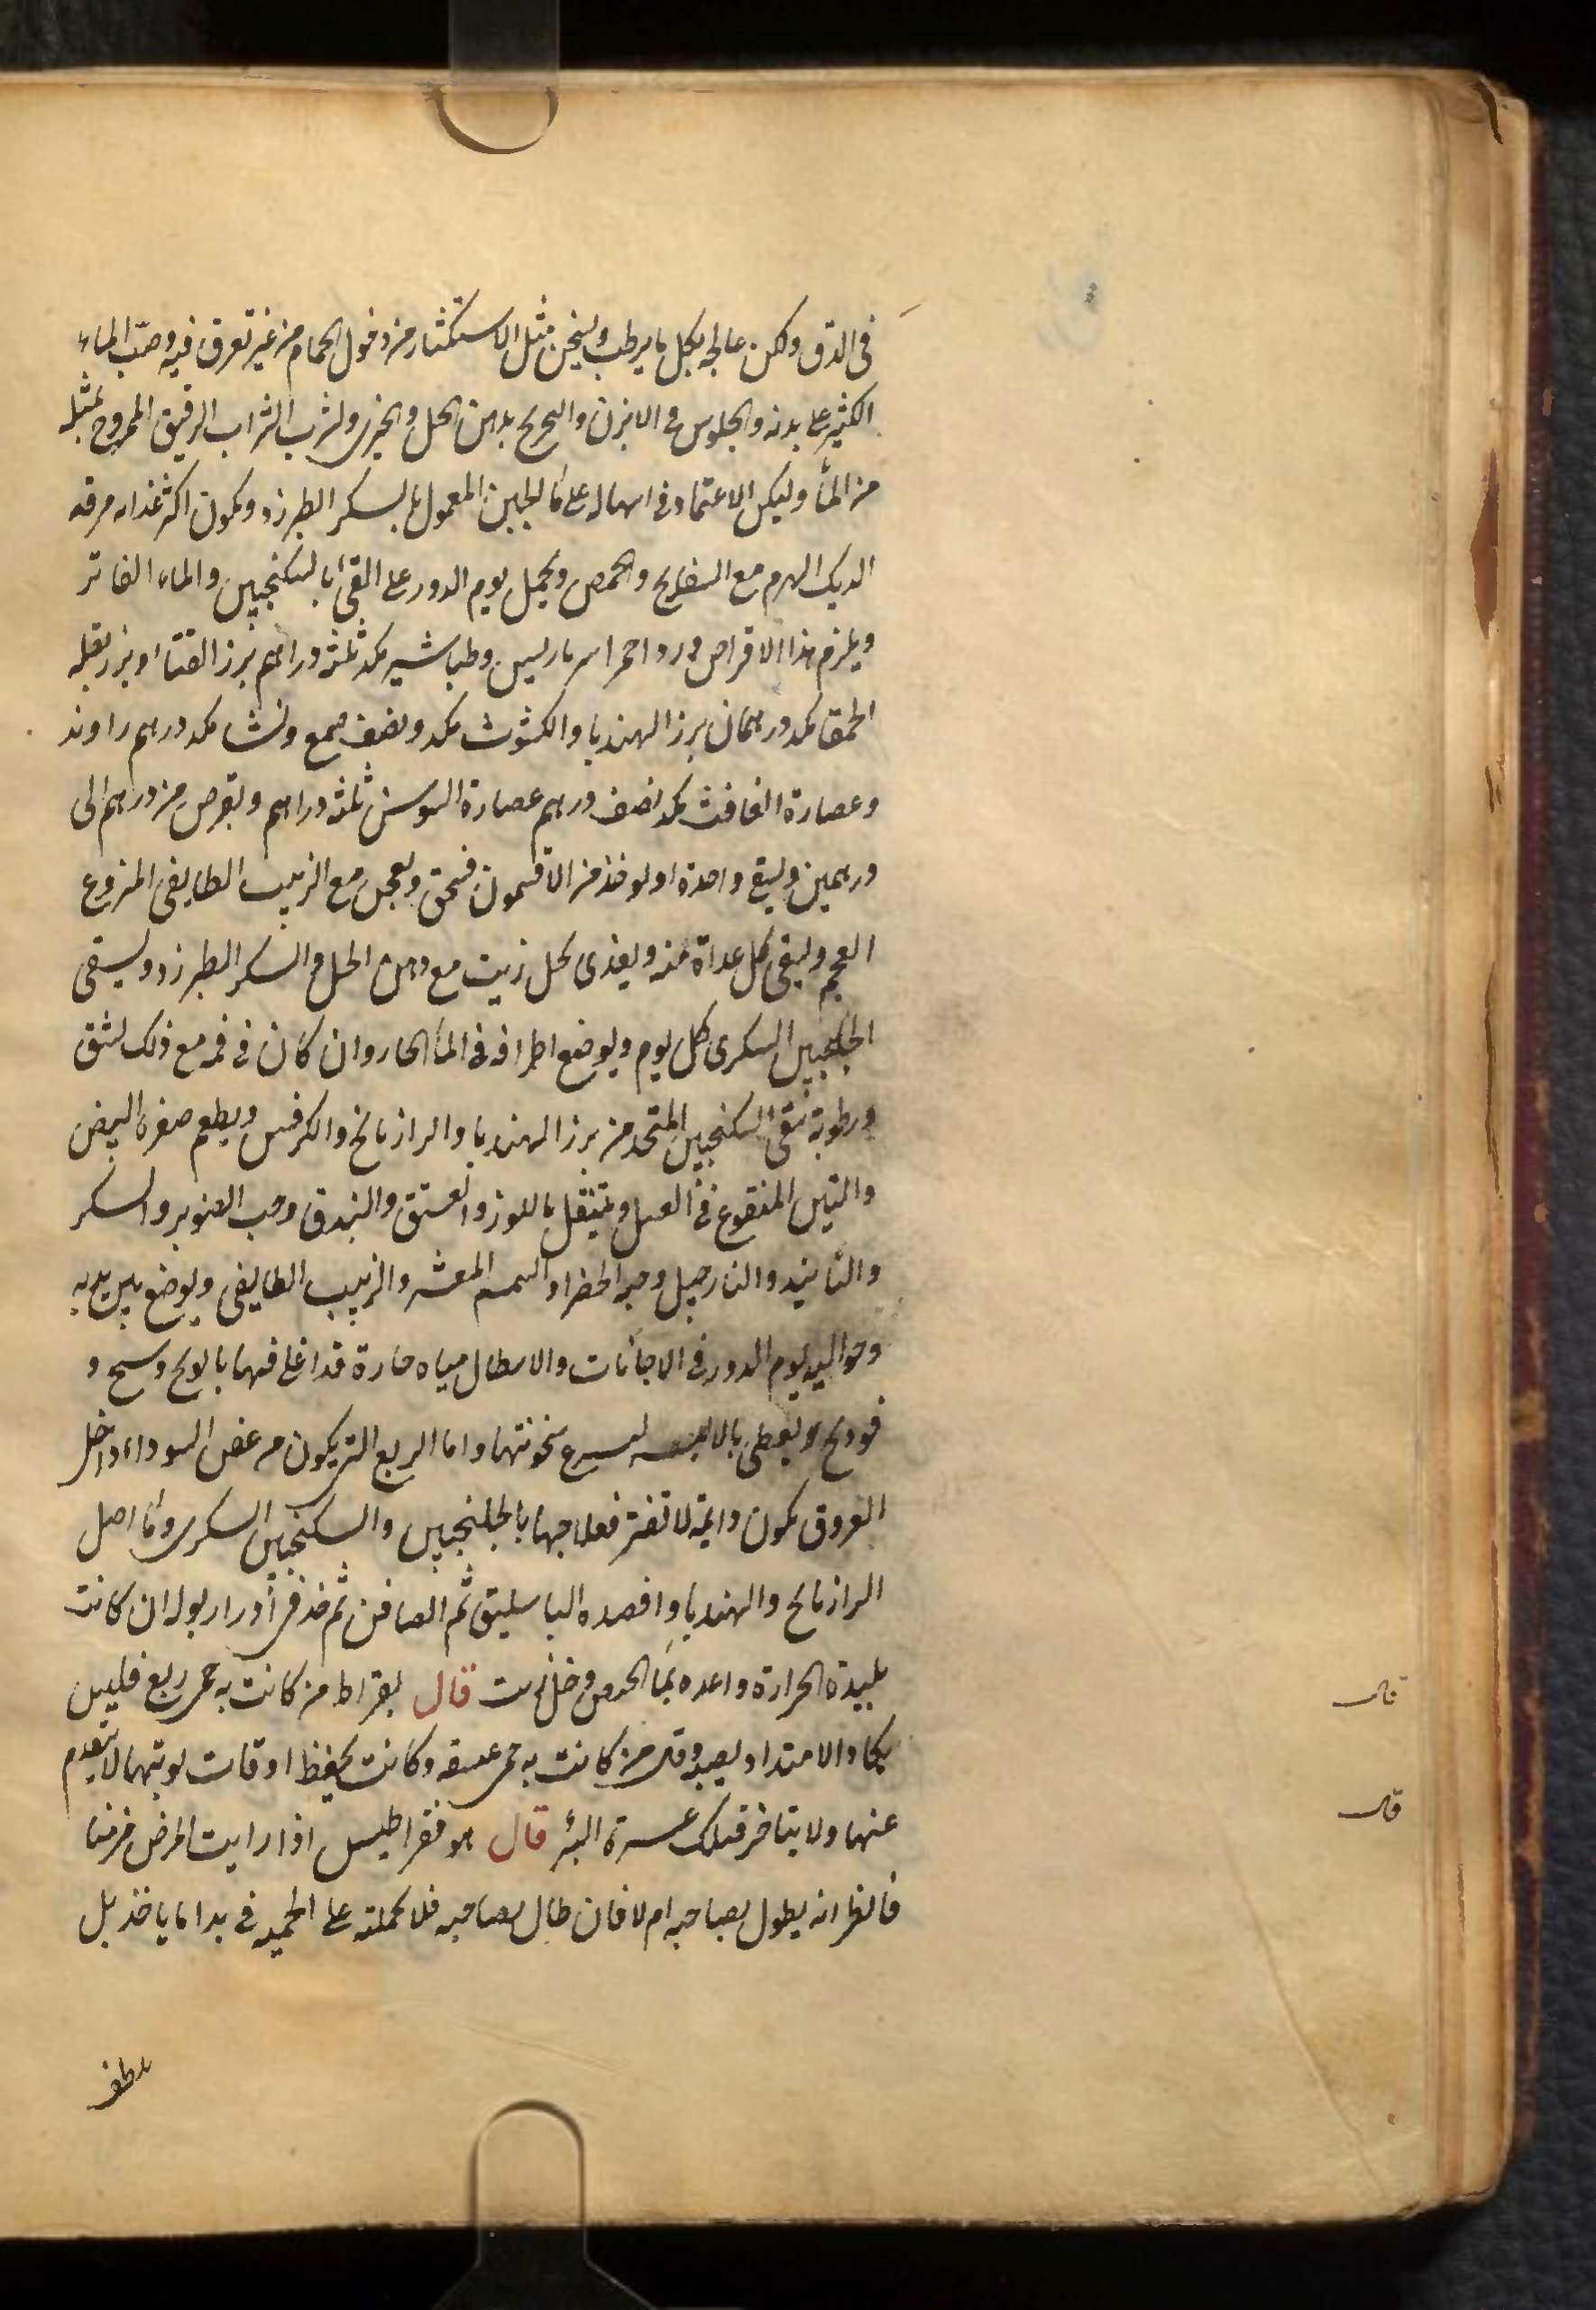 فى الدق ولكن عالجه بكل ما يرطب ويسخن مثل الاستكثار من دخول الحمام من غير تعرق فيه وصبّ الماء
الكثير على بدنه والجلوس فى الابزن والتمريخ بدهن الحل والخيرى وشرب الشراب الرقيق الممزوج بمثله
من الماء وليكن الاعتماد فى اسهاله على ماء الجبن المعمول بالسكر الطبرزد ويكون اكثر غذائه مرقه
الديك الهرم مع البسفايج والحمص ويحمل يوم الدور على القئ بالسكنجبين والماء الفاتر
ويلزم هذا الاقراص ورد احمر امبرباريس وطباشير مكد ثلثة دراهم بزر القثاء وبزر بقله
الحمقا مكد درهمان بزر الهندبا والكشوث مكد ونصف صمغ ونشا مكد درهم راوند
وعصارة الغافث مكد نصف درهم عصارة السوسن ثلثة دراهم ويقرص من درهم الى
درهمين ويسقى واحدة او يوخذ من الافتيمون فيسحق ويعجن مع الزبيب الطايفى المنزوع
العجم ويسقى كل غداة منه ويغذى بخل زيت مع دهن الحل والسكر الطبرزد ويسقى
الجلنجبين السكرى كل يوم ويوضع اطرافه فى الماء الحار وان كان فى فمه مع ذلك لثق
ورطوبة سقى السكنجبين المتخذ من بزر الهندبا والرازيانج والكرفس ويطعم صفرة البيض
والتين المنقوع فى العسل ويتنقل باللوز والفستق والبندق وحب الصنوبر والسكر
والفانيذ والنارجيل وحبه الخضرا والسمسم المقشر والزبيب الطايفى ويوضع بين يديه
وحواليه يوم الدور فى الاجانات والاسطال مياه حارة قد اغلى فيها بابونج وشيح و
فودنج ويغطى بالالبسه لسرع سخونتها واما الربع التى يكون من عفن السوداء داخل
العروق تكون دائمة لا تفتر فعلاجها بالجلنجبين والسكنجبين السكرى وماء اصل
الرازيانج والهندبا وافصده الباسليق ثم الصافن ثم خذ فى ادرار بوله ان كانت
بليدة الحرارة واغده بماء الحمص وخل زيت قال بقراط من كانت به حمى ربع فليس
يكاد الامتداد يصيبه وقال من كانت به حمى عتيقه وكانت يحفظ اوقات نوبتها لا يتقدم
عنها ولا يتاخر فتلك عسرة البرء قال هوفقراطيس اذا رايت المرض مزمنا
فانظر انه يطول بصاحبه ام لا فان طال بصاحبه فلا تحمله على الحميه فى بدا ما ياخذ بل
بلطف
قال
قال